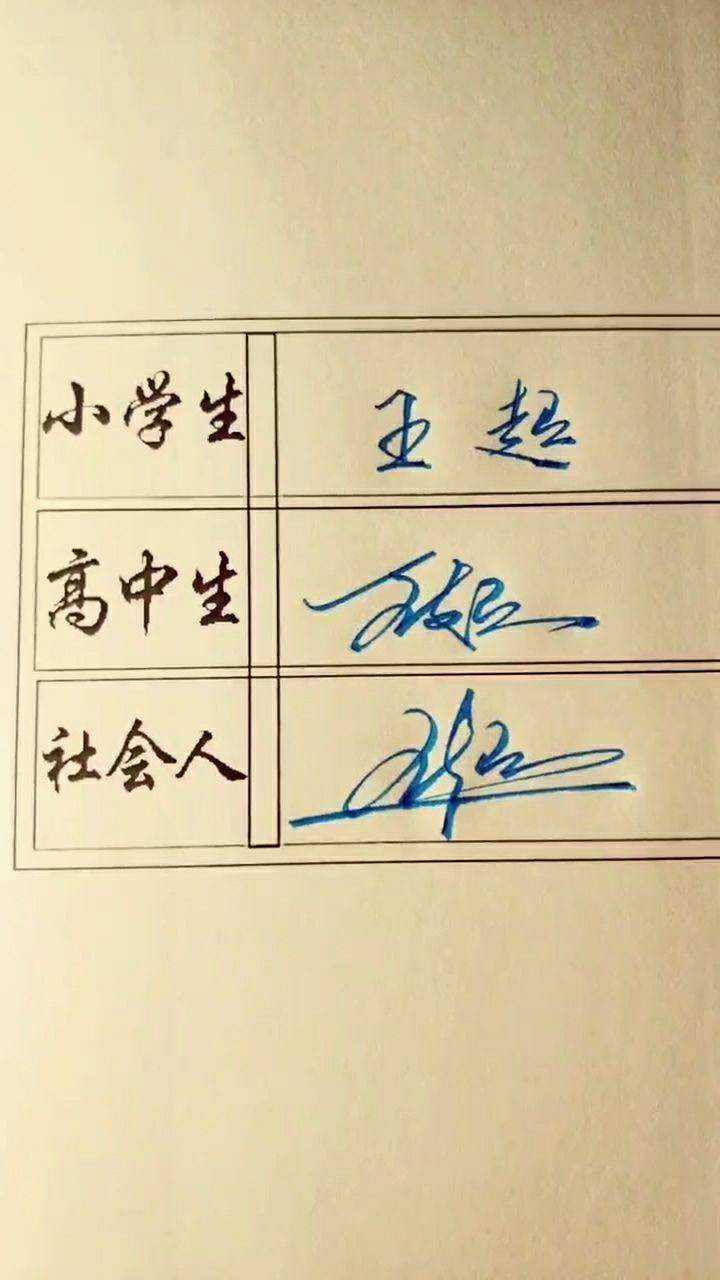 小学生 王超
高中生 王超
社会人 王超